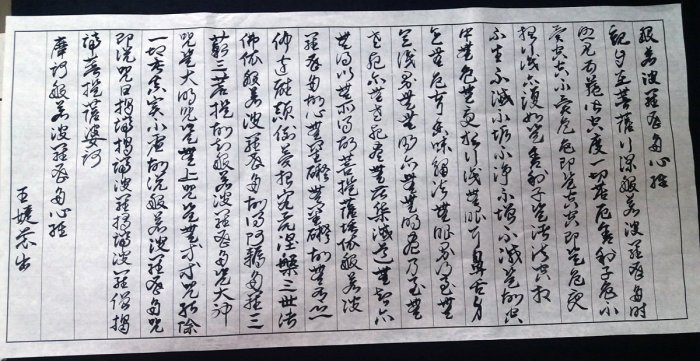 般若波羅蜜多心經
觀自在菩薩行深般若波羅蜜多時
照見五蘊皆空度一切苦厄舍利子色不
異空空不異色色即是空空即是色受
想行識亦復如是舍利子是諸法空相
不生不滅不垢不淨不增不減是故空
中無色無受想行識無眼耳鼻舌身
意無色聲香味觸法無眼界乃至無
意識界無無明亦無無明盡乃至無
老死亦無老死盡無苦集滅道無智亦
無得以無所得故菩提薩埵依般若波
羅蜜多故心無罣礙無罣礙故無有恐
怖遠離顛倒夢想究竟涅槃三世諸
佛依般若波羅蜜多故得阿耨多羅三
藐三菩提故知般若波羅蜜多是大神
咒是大明咒是無上咒是無等等咒能除
一切苦真實不虛故說般若波羅蜜多咒
即說咒曰揭諦揭諦波羅揭諦波羅僧揭
諦菩提薩婆訶
摩訶般若波羅蜜多心經
王